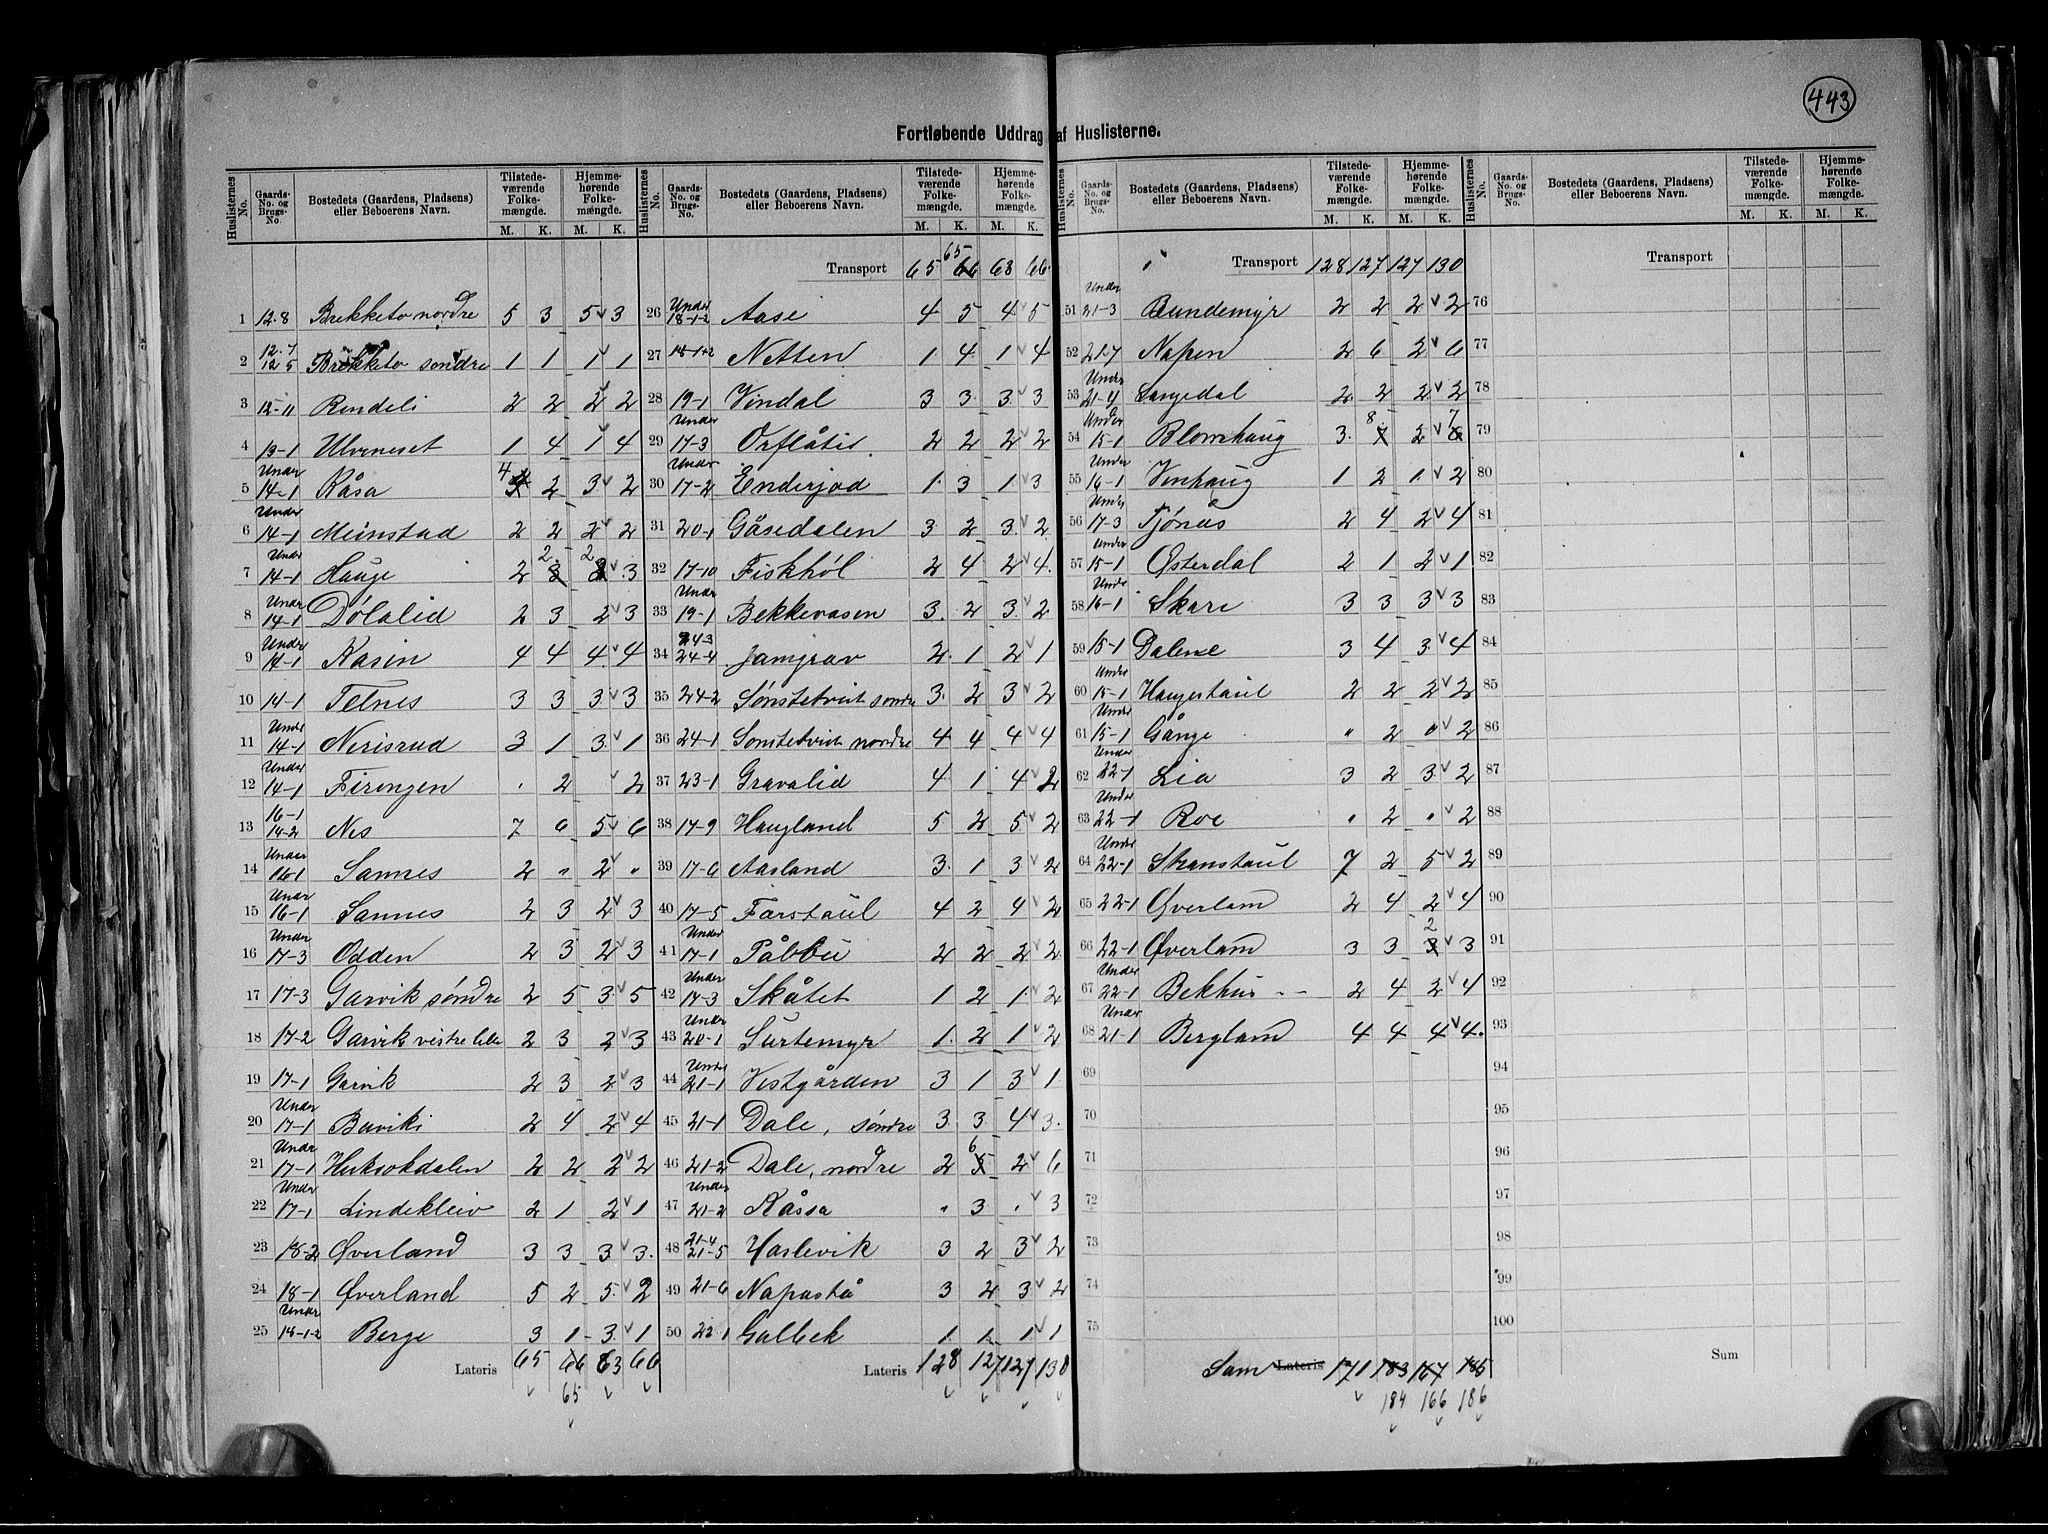 443
Fortløbende Uddrag af Huslisterne.
Huslisternes No. Gaards-No. og Brugs-No. Bostedets (Gaardens, Pladsens) eller Beboerens Navn. Tilstedeværende Folkemængde. M. K. Hjemmehørende Folkemængde. M. K.
1 12.8 Brekketo nordre 5 3 5 3
2 12.7 12.5 Brekketo søndre 1 1 1 1
3 12-11 Rendeli 2 2 2 2
4 13-1 Ulveneset 1 4 1 4
5 Under 14-1 Råsa 4 2 3 2
6 Under 14-1 Meinstad 2 2 2 2
7 Under 14-1 Hauge 2 2 2 3
8 Under 14-1 Dölalid 2 3 2 3
9 Under 14-1 Kasin 4 4 4 4
10 14-1 Telnes 3 3 3 3
11 Under 14-1 Nerisrud 3 1 3 1
12 Under 14-1 Firingen . 2 2
13 16-1 14-2 Nes 7 6 5 6
14 Under 16-1 Sannes 2 " 2 "
15 Under 16-1 Sannes 2 3 2 3
16 Under 17-3 Odden 2 3 2 3
17 17-3 Garvik søndre 2 5 3 5
18 17-2 Garvik vestre lille 2 3 2 3
19 17-1 Garvik 2 3 2 3
20 Under 17-1 Buviki 2 4 2 4
21 Under 17-1 Huksokdalen 2 2 2 2
22 Under 17-1 Lindekleiv 2 1 2 1
23 18-2 Øverland 3 3 3 3
24 18-1 Øverland 5 2 5 2
25 Under 18-1-2 Berge 3 1 3 1
Lateris 65 66 63 66
65
Transport 65 65 66 63 66
26 Under 18-1-2 Aase 4 5 4 5
27 18-1+2 Netten 1 4 1 4
28 19-1 Vindal 3 3 3 3
29 Under 17-3 Orflåtis 2 2 2 2
30 Under 17-2 Enderjod 1 3 1 3
31 20-1 Gåsedalen 3 2 3 2
32 17-10 Fiskhöl 2 4 2 4
33 Under 19-1 Bekkevasen 3 2 3 2
34 24-3 24-4 Jamgrav 2 1 2 1
35 24-2 Sønstetveit søndre 3 2 3 2
36 24-1 Sønstetveit nordre 4 4 4 4
37 23-1 Gravalid 4 1 4 2
38 17-9 Haugland 5 2 5 2
39 17-6 Aasland 3 1 3 2
40 17-5 Farstaul 4 2 4 2
41 Under 17-1 Påbbu 2 2 2 2
42 Under 17-3 Skåtet 1 2 1 2
43 Under 20-1 Surtemyr 1 2 1 2
44 Under 21-1 Vestgården 3 1 3 1
45 21-1 Dale, søndre 3 3 4 3
46 21-2 Dale, nordre 2 6 2 6
47 Under 21-2 Råssa " 3 " 3
48 21-4 21-5 Haslevik 3 2 3 2
49 21-6 Napastå 3 2 3 2
50 22-1 Galbek 1 1 1 1
Lateris 128 127 127 130
Transport 128 127 127 130
51 Under 21-3 Bundemyr 2 2 2 2
52 21-7 Napen 2 6 2 6
53 Under 21-4 Langedal 2 2 2 2
54 Under 15-1 Blomhaug 3 8 2 7
55 Under 16-1 Venhaug 1 2 1 2
56 Under 17-3 Tjönås 2 4 2 4
57 Under 15-1 Østerdal 2 1 2 1
58 Under 16-1 Skare 3 3 3 3
59 15-1 Dalene 3 4 3 4
60 Under 15-1 Haugestaul 2 2 2 2
61 Under 15-1 Gånge " 2 " 2
62 Under 22-1 Lia 3 2 3 2
63 Under 22-1 Roe " 2 " 2
64 Under 22-1 Skranstaul 7 2 5 2
65 22-1 Øverlam 2 4 2 4
66 22-1 Øverlam 3 3 2 3
67 Under 22-1 Bekhus 2 4 2 4
68 Under 21-1 Berglam 4 4 4 4
69
70
71
72
73
74
75
Sam Lateris 171 183 167 185
184 166 186
Transport
76
77
78
79
80
81
82
83
84
85
86
87
88
89
90
91
92
93
94
95
96
97
98
99
100
Sum